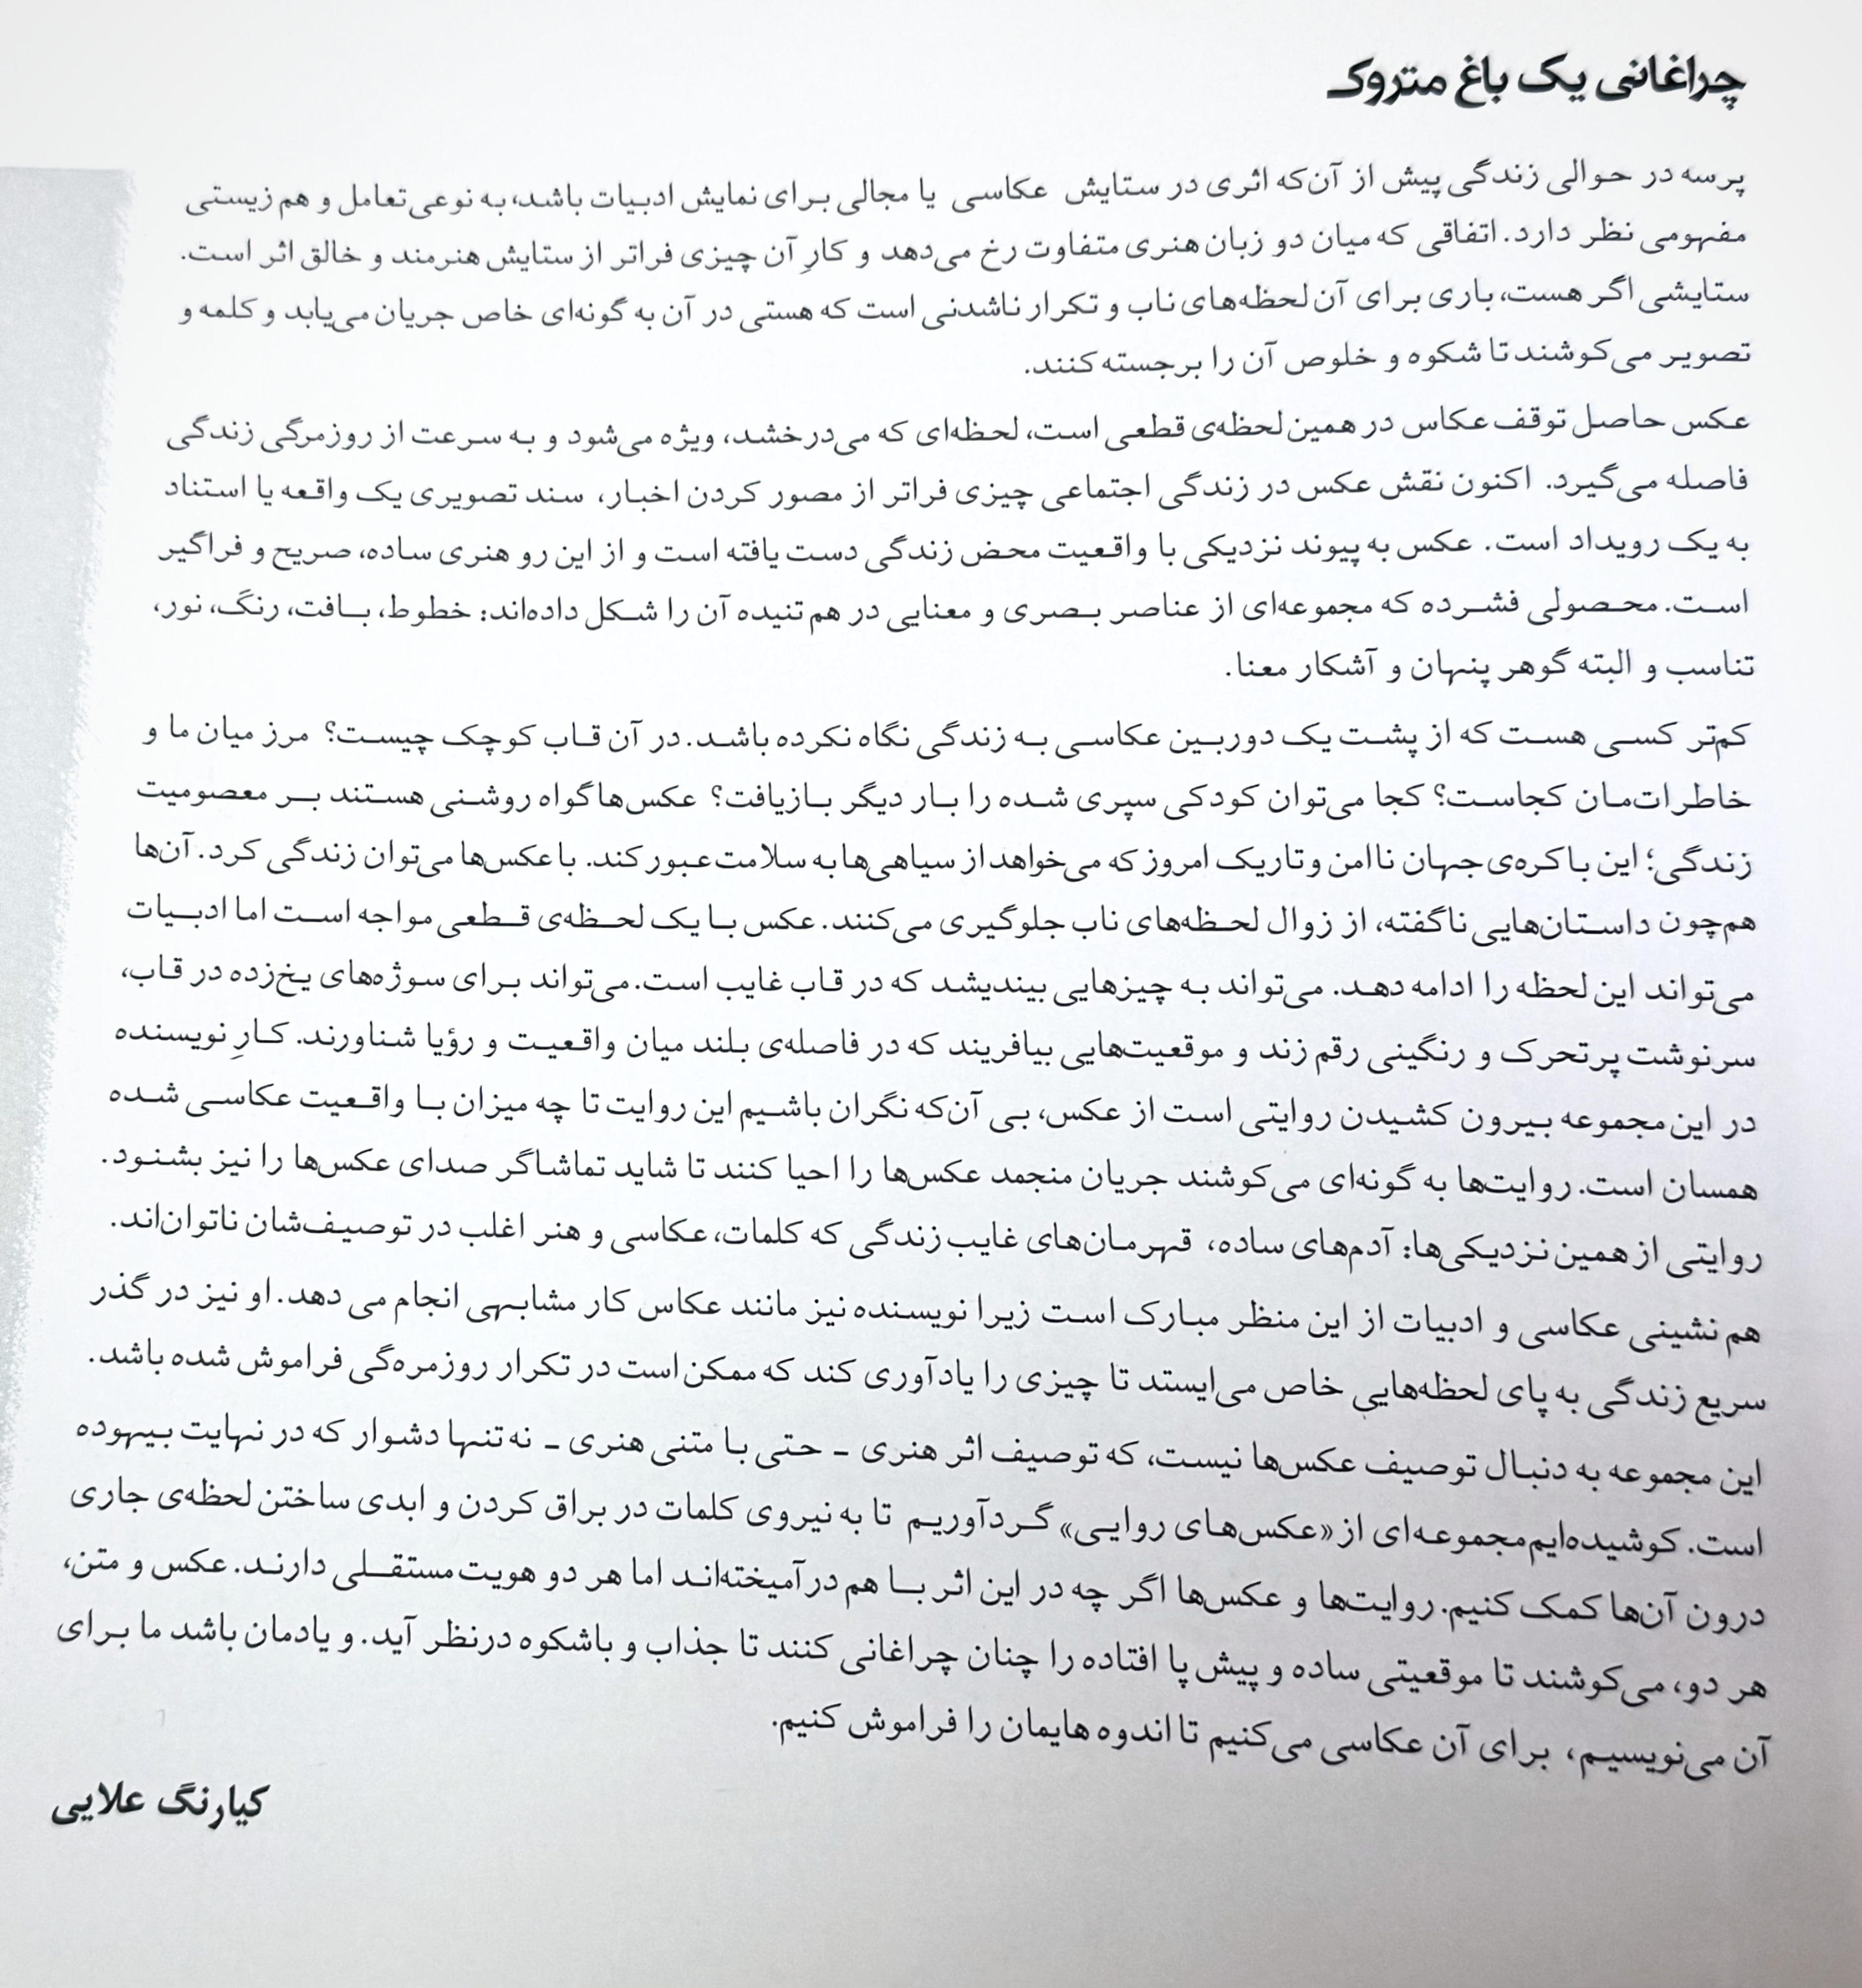 چراغانی یک باغ متروک
پرسه در حوالی زندگی پیش از آن‌که اثری در ستایش عکاسی یا مجالی برای نمایش ادبیات باشد، به نوعی تعامل و هم زیستی
مفهومی نظر دارد. اتفاقی که میان دو زبان هنری متفاوت رخ می‌دهد و کارِ آن چیزی فراتر از ستایش هنرمند و خالق اثر است.
ستایشی اگر هست، باری برای آن لحظه‌های ناب و تکرار ناشدنی است که هستی در آن به گونه‌ای خاص جریان می‌یابد و کلمه و
تصویر می‌کوشند تا شکوه و خلوص آن را برجسته کنند.
عکس حاصل توقف عکاس در همین لحظه‌ی قطعی است، لحظه‌ای که می‌درخشد، ویژه می‌شود و به سرعت از روزمرگی زندگی
فاصله می‌گیرد. اکنون نقش عکس در زندگی اجتماعی چیزی فراتر از مصور کردن اخبار، سند تصویری یک واقعه یا استناد
به یک رویداد است. عکس به پیوند نزدیکی با واقعیت محض زندگی دست یافته است و از این رو هنری ساده، صریح و فراگیر
است. محصولی فشرده که مجموعه‌ای از عناصر بصری و معنایی در هم تنیده آن را شکل داده‌اند: خطوط، بافت، رنگ، نور،
تناسب و البته گوهر پنهان و آشکار معنا.
کم‌تر کسی هست که از پشت یک دوربین عکاسی به زندگی نگاه نکرده باشد. در آن قاب کوچک چیست؟ مرز میان ما و
خاطرات‌مان کجاست؟ کجا می‌توان کودکی سپری شده را بار دیگر بازیافت؟ عکس‌ها گواه روشنی هستند بر معصومیت
زندگی؛ این باکره‌ی جهان ناامن و تاریک امروز که می‌خواهد از سیاهی‌ها به سلامت عبور کند. با عکس‌ها می‌توان زندگی کرد. آن‌ها
هم‌چون داستان‌هایی ناگفته، از زوال لحظه‌های ناب جلوگیری می‌کنند. عکس با یک لحظه‌ی قطعی مواجه است اما ادبیات
می‌تواند این لحظه را ادامه دهد. می‌تواند به چیزهایی بیندیشد که در قاب غایب است. می‌تواند برای سوژه‌های یخ‌زده در قاب،
سرنوشت پرتحرک و رنگینی رقم زند و موقعیت‌هایی بیافریند که در فاصله‌ی بلند میان واقعیت و رؤیا شناورند. کارِ نویسنده
در این مجموعه بیرون کشیدن روایتی است از عکس، بی آن‌که نگران باشیم این روایت تا چه میزان با واقعیت عکاسی شده
همسان است. روایت‌ها به گونه‌ای می‌کوشند جریان منجمد عکس‌ها را احیا کنند تا شاید تماشاگر صدای عکس‌ها را نیز بشنود.
روایتی از همین نزدیکی‌ها: آدم‌های ساده، قهرمان‌های غایب زندگی که کلمات، عکاسی و هنر اغلب در توصیف‌شان ناتوان‌اند.
هم نشینی عکاسی و ادبیات از این منظر مبارک است زیرا نویسنده نیز مانند عکاس کار مشابهی انجام می دهد. او نیز در گذر
سریع زندگی به پای لحظه‌هایی خاص می‌ایستد تا چیزی را یادآوری کند که ممکن است در تکرار روزمره‌گی فراموش شده باشد.
این مجموعه به دنبال توصیف عکس‌ها نیست، که توصیف اثر هنری - حتی با متنی هنری - نه تنها دشوار که در نهایت بیهوده
است. کوشیده‌ایم مجموعه‌ای از «عکس‌های روایی» گردآوریم تا به نیروی کلمات در براق کردن و ابدی ساختن لحظه‌ی جاری
درون آن‌ها کمک کنیم. روایت‌ها و عکس‌ها اگر چه در این اثر با هم درآمیخته‌اند اما هر دو هویت مستقلی دارند. عکس و متن،
هر دو، می‌کوشند تا موقعیتی ساده و پیش پا افتاده را چنان چراغانی کنند تا جذاب و باشکوه درنظر آید. و یادمان باشد ما برای
آن می‌نویسیم، برای آن عکاسی می‌کنیم تا اندوه هایمان را فراموش کنیم.
کیارنگ علایی